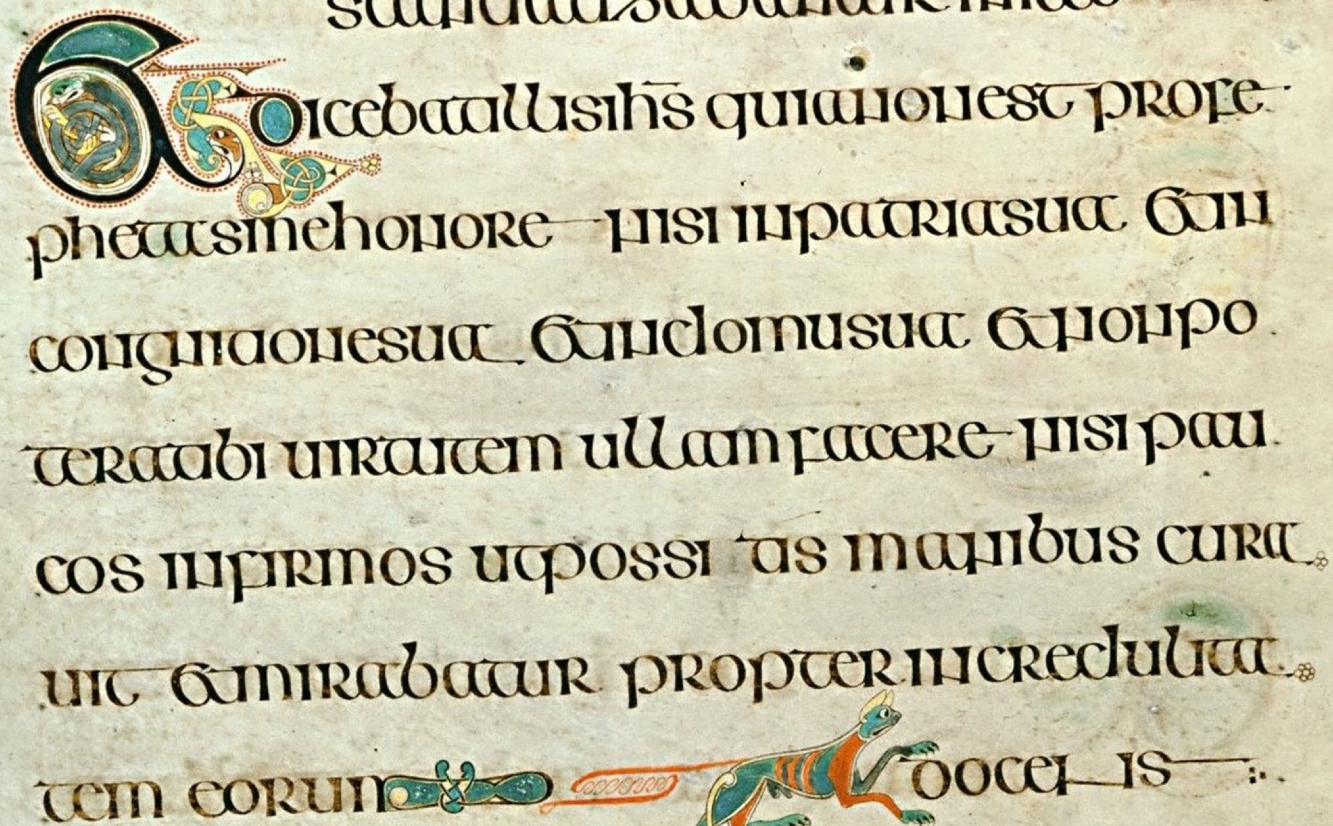 Et dicebatillisihs̄ quianonest profe
phetasinehonore nisi inpatriasua etin
congnationesua etindomusua etnonpo
teratibi uirtutem ullam facere nisi pau
cos infirmos utpossi tis manibus cura
uit etmirabatur propter incredulita
tem eorum docens